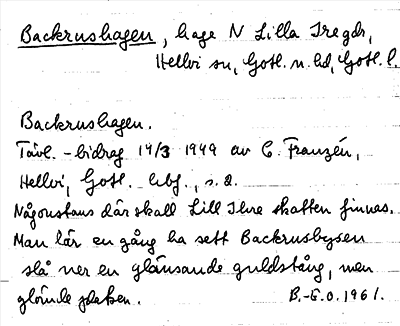 Backrushagen, hage N Lilla Iregds,
Hellvi sn, Gotl. n. hd, Gotl. l.
Backrushagen.
Tävl.-bidrag 14/3 1949 av C. Franzén,
Hellvi, Gotl. hbf., s. d.
Någonstans där skall Lill Ihre skatten finnas.
Man lär en gång ha sett Backrusbysen
slå ner en glänsande guldstång, men
glömde platsen. B.-E.O. 1961.